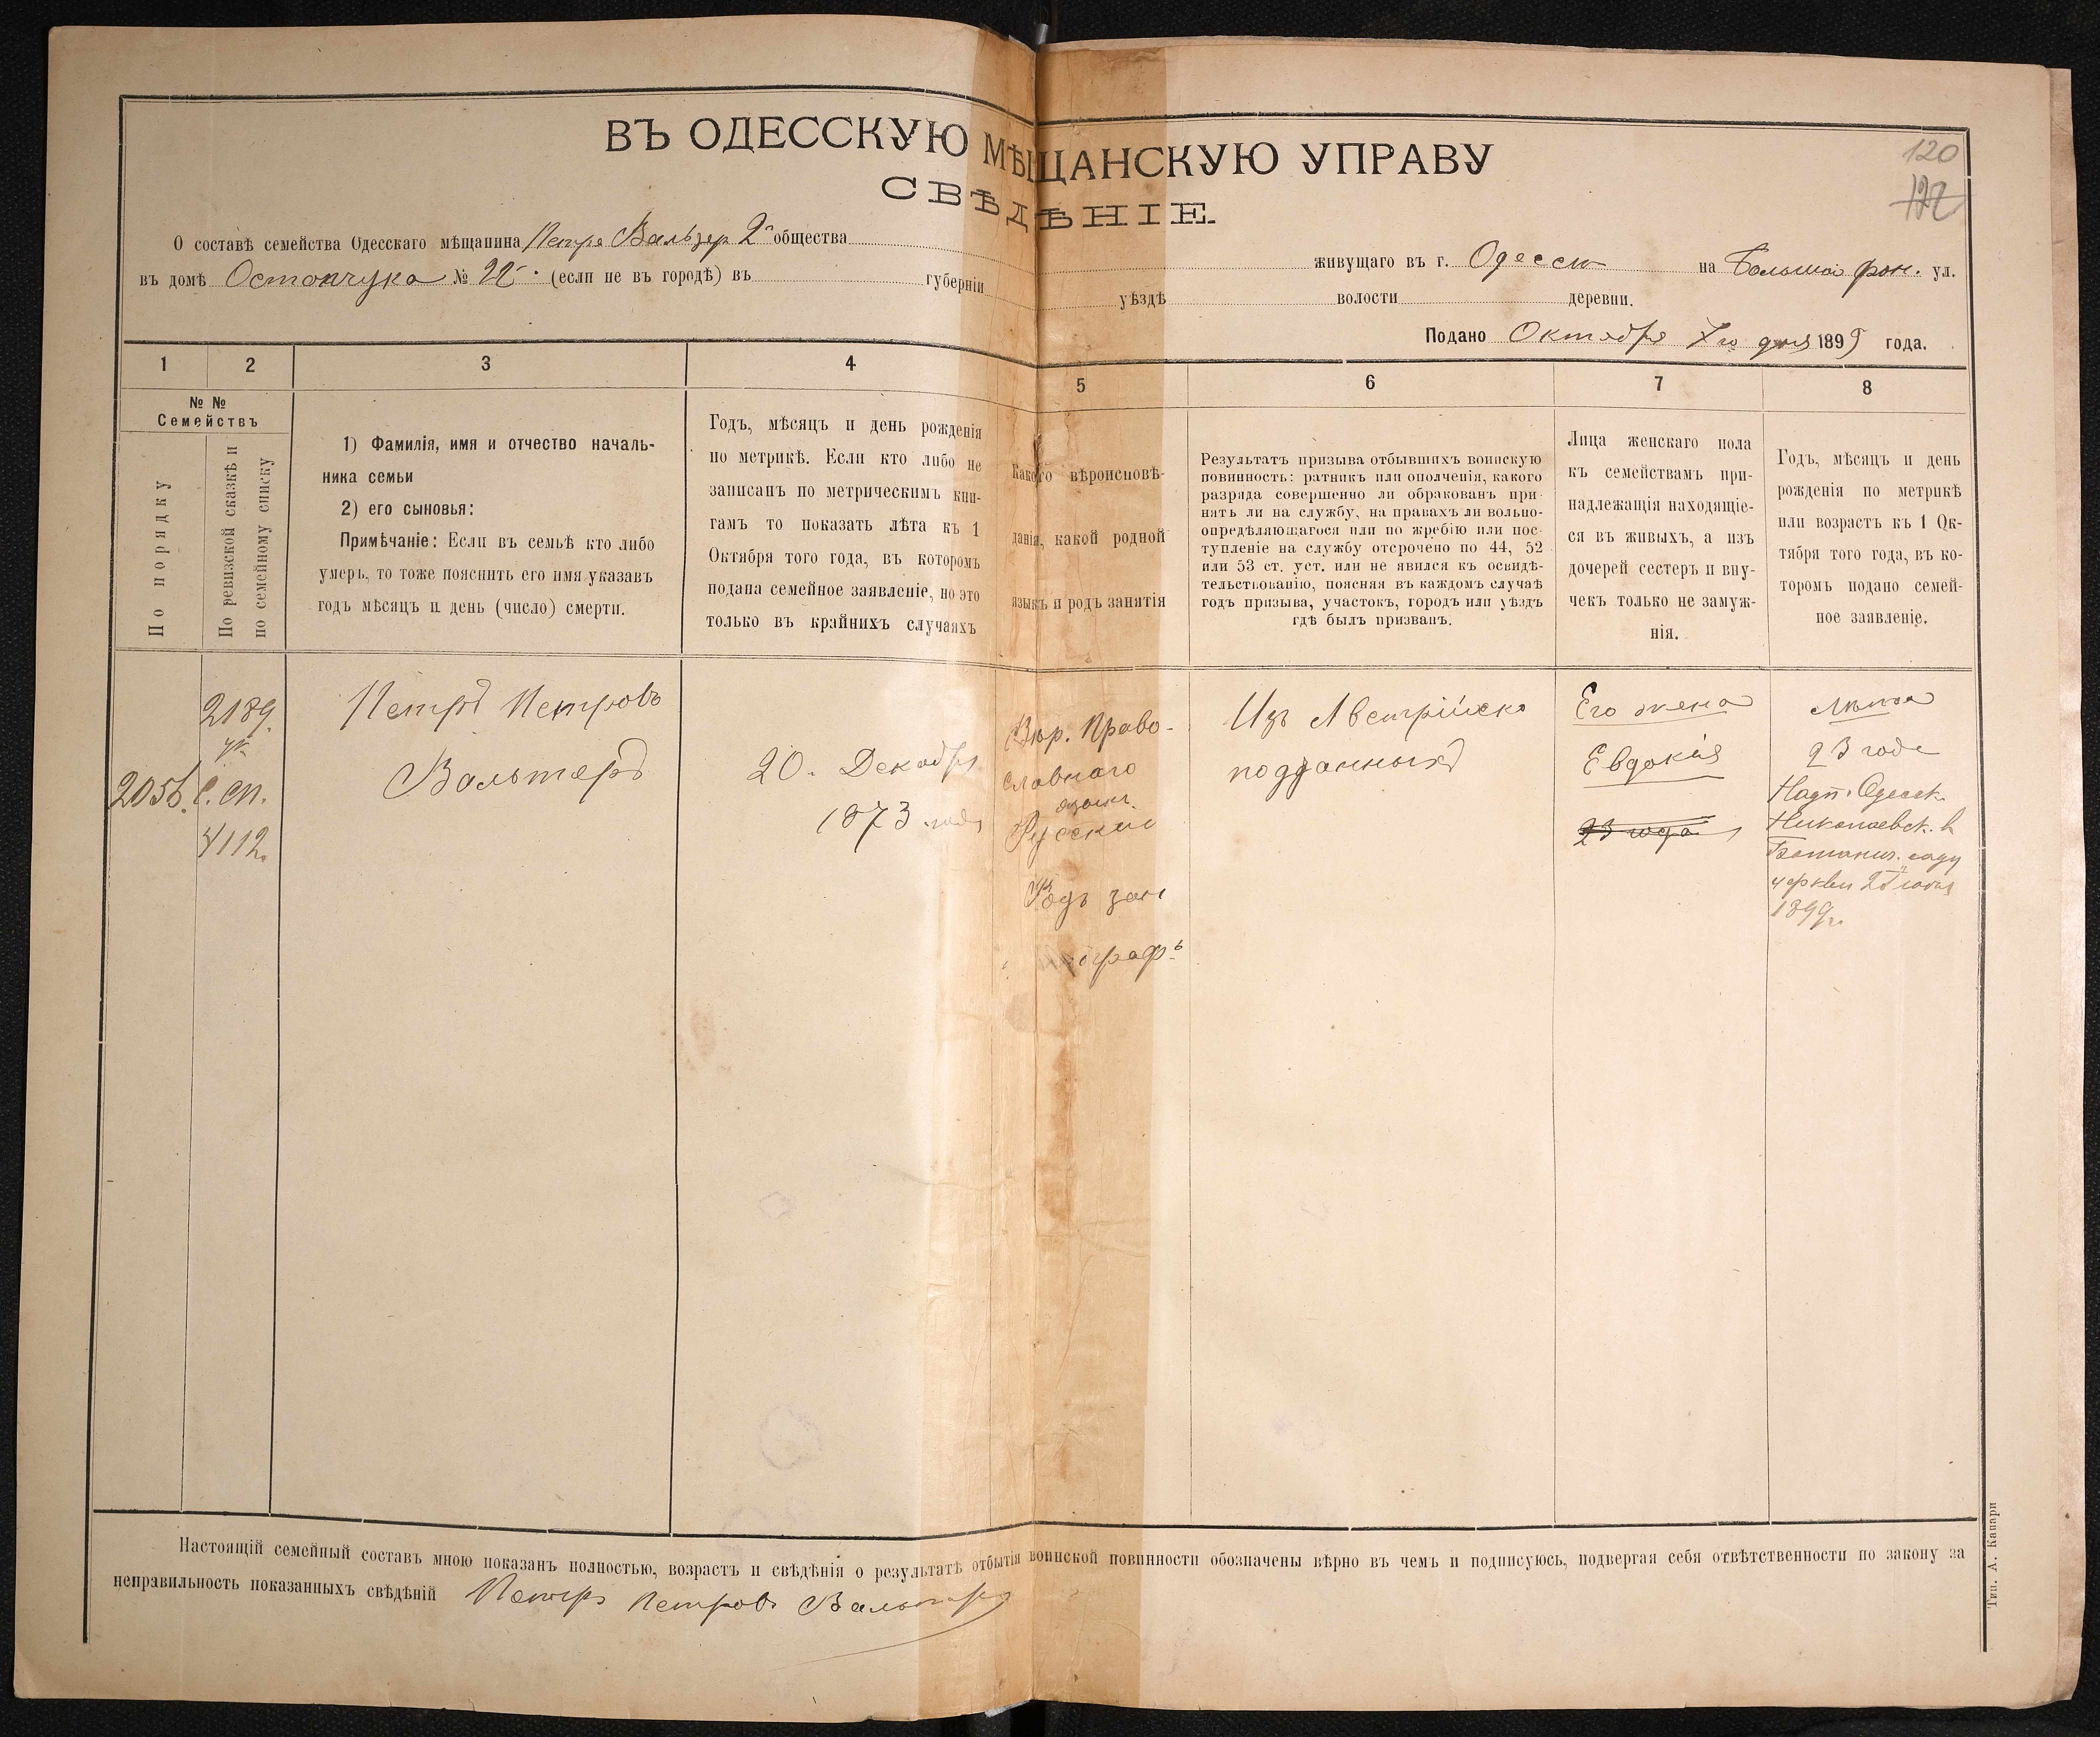 ВЪ ОДЕССКУЮ МѢЩАНСКУЮ УПРАВУ
СВѢДѢНІЕ.
120
122
О составѣ семейства Одесскаго мѣщанина Петра Вальтер 2го общества
живущаго въ г. Одессѣ на Большой фон. ул.
въ домѣ Остапчука № 22. (если не въ городѣ) въ губерніи уѣздѣ волости деревни.
Подано Октября 7го дня 1899 года.
1 2 3 4 5 6 7 8
№ №
Семействъ
По порядку
По ревизской сказкѣ и
по семейному списку
1) Фамилія, имя и отчество началь-
ника семьи
2) его сыновья:
Примѣчаніе: Если въ семьѣ кто либо
умеръ, то тоже пояснить его имя указавъ
годъ мѣсяцъ и день (число) смерти.
Годъ, мѣсяцъ и день рожденія
по метрикѣ. Если кто либо не
записанъ по метрическимъ кни-
гамъ то показать лѣта къ 1
Октября того года, въ которомъ
подана семейное заявленіе, но это
только въ крайнихъ случаяхъ
Какого вѣроисповѣ-
данія, какой родной
языкъ и родъ занятія
Результатъ призыва отбывшихъ воинскую
повинность: ратникъ или ополченія, какого
разряда совершенно ли обракованъ при-
нятъ ли на службу, на правахъ ли вольно-
опредѣляющагося или по жребію или пос-
тупленіе на службу отсрочено по 44, 52
или 53 ст. уст. или не явился къ освидѣ-
тельствованію, поясняя въ каждомъ случаѣ
годъ призыва, участокъ, городъ или уѣздъ
гдѣ былъ призванъ.
Лица женскаго пола
къ семействамъ при-
надлежащія находящіе-
ся въ живыхъ, а изъ
дочерей сестеръ и вну-
чекъ только не замуж-
нія.
Годъ, мѣсяцъ и день
рожденія по метрикѣ
или возрастъ къ 1 Ок-
тября того года, въ ко-
торомъ подано семей-
ное заявленіе.
2056.
2189.
С. сп.
4112.
Петръ Петровъ
Вальтеръ
20. Декабря
1873 года
Вѣр. Право-
славнаго
языкъ
Русскій
Родъ зан
Изъ Австрійско
подданныхъ
Его жена
Евдокія
23 года
Лѣта
23 года
Надп. Одесск.
Николаевск. в
Ботанич. саду
церкви
1899г.
Настоящій семейный составъ мною показанъ полностью, возрастъ и свѣдѣнія о результатѣ отбытія воинской повинности обозначены вѣрно въ чемъ и подписуюсь, подвергая себя отвѣтственности по закону за
неправильность показанныхъ свѣдѣній Петръ Петровъ Вальтеръ
Тип. А. Капари